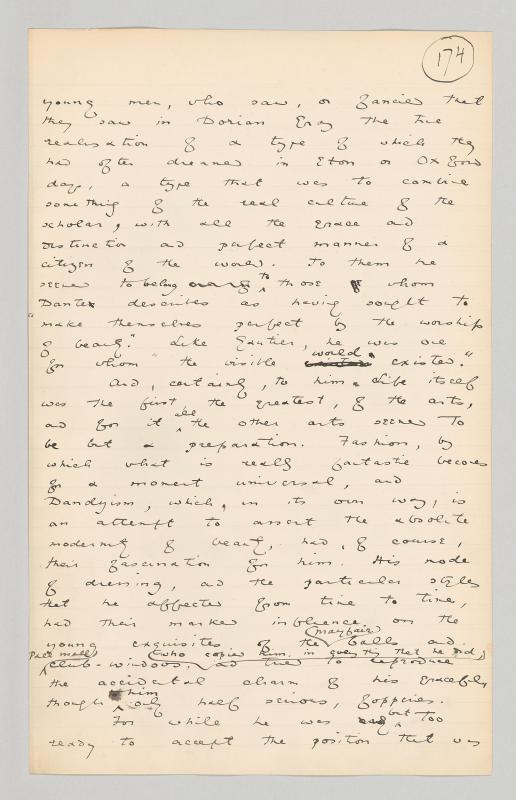 174
young men, who saw, or fancied that
they saw in Dorian Gray the true
realisation of a type of which they
had often dreamed in Eton or Oxford
days, a type that was to combine
something of the real culture of the
scholar, with all the grace and
distinction and perfect manner of a
citizen of the world. To them he
seemed to belong to those whom
Dante describes as having sought to
"make themselves perfect by the worship
of beauty." Like Gautier, he was one
for whom "the visible world existed."
And, certainly, to him Life itself
was the first, the greatest, of the arts,
and for it all the other arts seemed to
be but a preparation. Fashion, by
which what is really fantastic becomes
for a moment universal, and
Dandyism, which, in its own way, is
an attempt to assert the absolute
modernity of beauty, had, of course,
their fascination for him. His mode
of dressing, and the particular styles
that he affected from time to time,
had their marked influence on the
young exquisites of the Mayfair balls and
Pall Mall club-windows, who copied him in everything that he did, and tried to reproduce
the accidental charm of his graceful,
though to him only half serious, fopperies.
For while he was but too
ready to accept the position that was